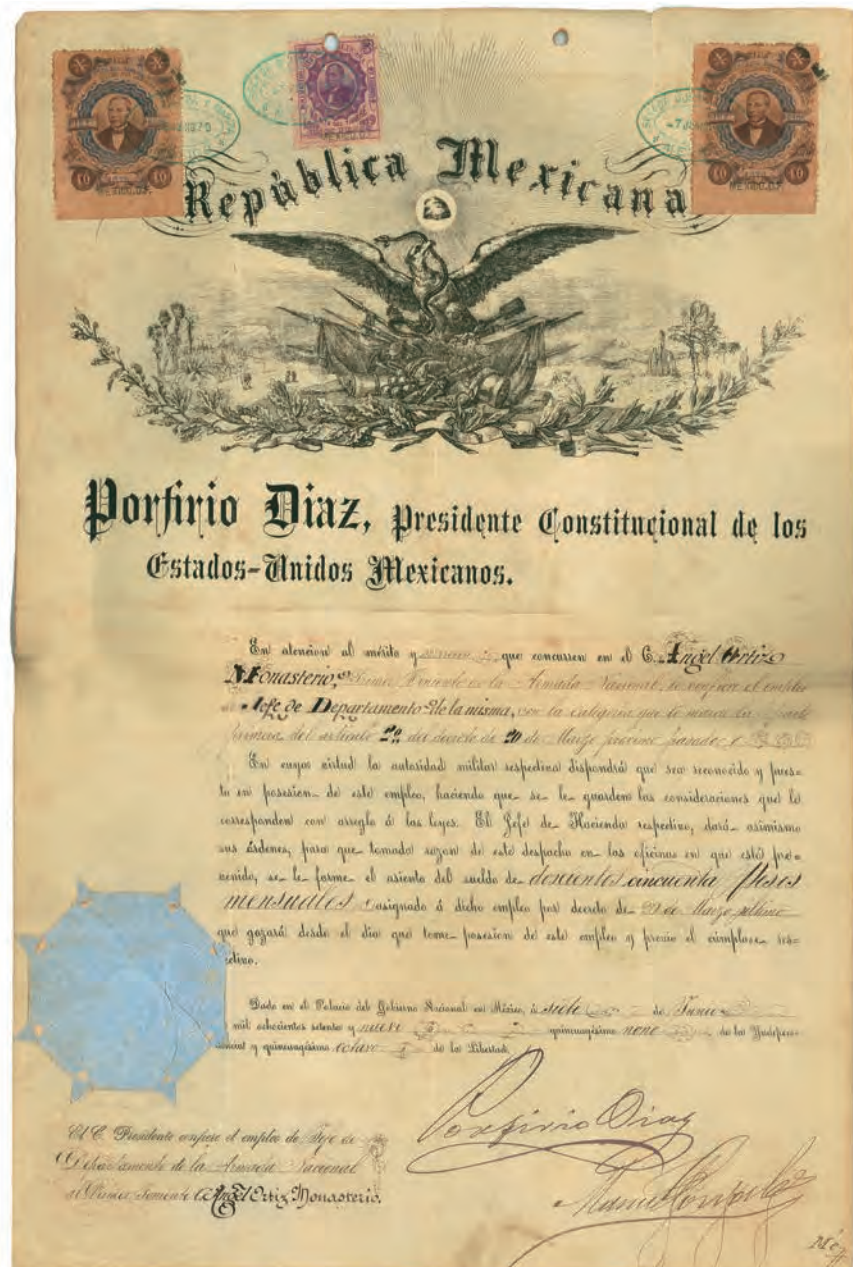 República Mexicana
Porfirio Diaz, Presidente Constitucional de los
Estados-Unidos Mexicanos.
En atencion al mérito y que concurren en el C. Angel Ortiz
Monasterio, Primer Teniente de la Armada Nacional, le confiere el empleo
de Jefe de Departamento de la misma, con la categoria que le marca la parte
primera del artículo 2º del decreto de 20 de Marzo próximo pasado
En cuya virtud la autoridad militar respectiva dispondrá que sea reconocido y pues-
to en posesion de este empleo, haciendo que se le guarden las consideraciones que le
corresponden con arreglo á las leyes. El Jefe de Hacienda respectivo, dará asimismo
sus órdenes, para que tomada razon de este despacho en las oficinas en que está pre-
venido, se le forme el asiento del sueldo de doscientos cincuenta pesos
mensuales asignado á dicho empleo por decreto de de Marzo último
que gozará desde el dia que tome posesion de este empleo y prévio el cúmplase res-
pectivo.
Dado en el Palacio del Gobierno Nacional en México, á siete de Junio
mil ochocientos setenta y nueve quincuagésimo nono de la Indepen-
dencia y quincuagésimo octavo de la Libertad.
Porfirio Diaz
El C. Presidente confiere el empleo de Jefe de
Departamento de la Armada Nacional
al Primer Teniente Angel Ortiz Monasterio.
Manuel González